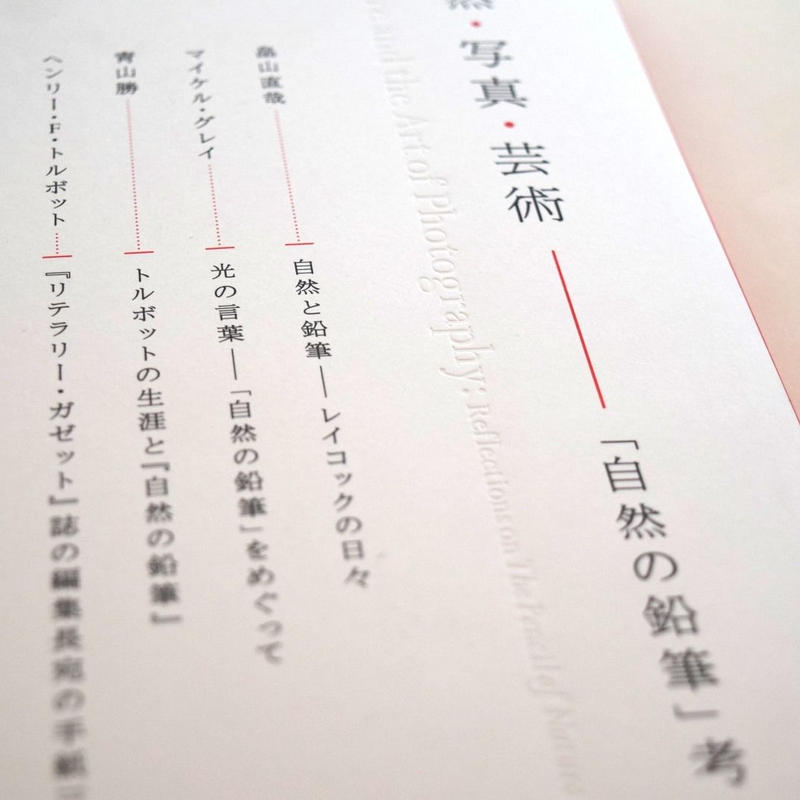 然・写真・芸術――「自然の鉛筆」考
and the Art of Photography: Reflections on The Pencil of Nature
畠山直哉……自然と鉛筆――レイコックの日々
マイケル・グレイ……光の言葉――「自然の鉛筆」をめぐって
青山勝……トルボットの生涯と『自然の鉛筆』
ヘンリー・F・トルボット……『リテラリー・ガゼット』誌の編集長宛の手紙